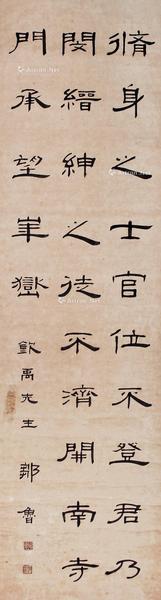 脩身之士官位不登君乃
閔縉紳之徒不濟開南寺
門承望華嶽
欽禹先生 鄒魯